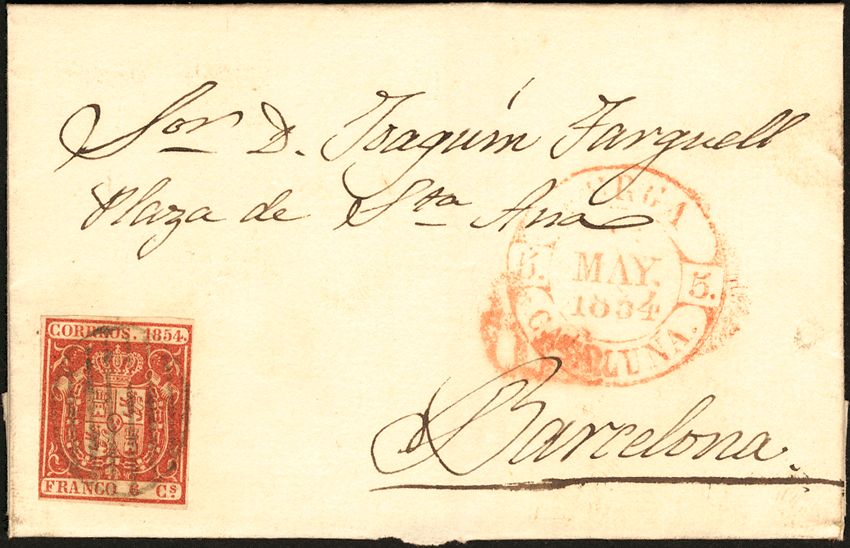 Sor D. Joaquím Farguell
Plaza de Sta Ana
MAY.
1854
5. 5.
Barcelona.
CORREOS. 1854.
FRANCO 6 Cs